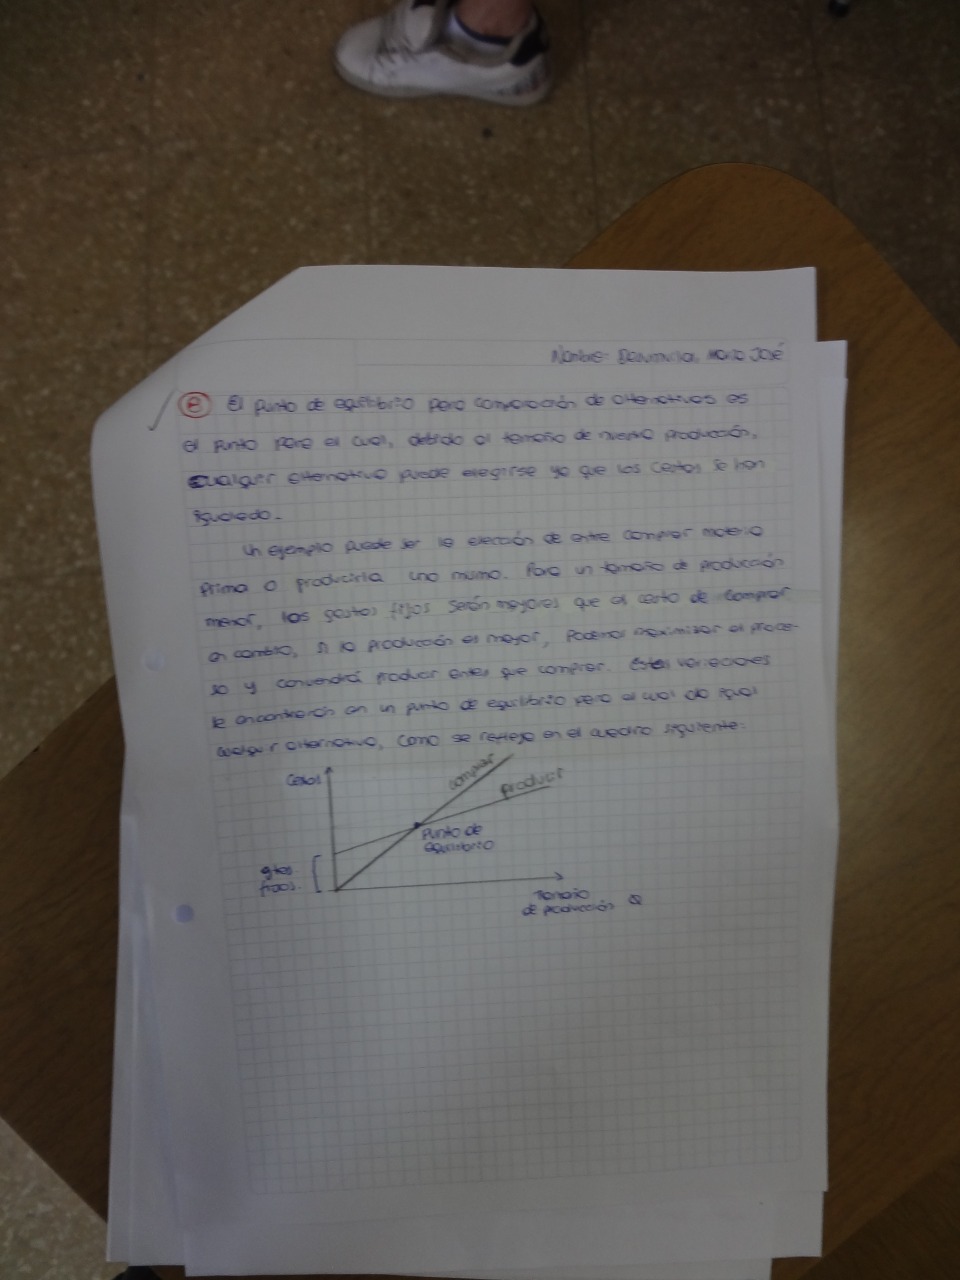 Nombre: María José
e El punto de equilibrio para comparación de alternativas es
el punto para el cual, debido al tamaño de nuestra producción,
cualquier alternativa puede elegirse ya que los costos se han
igualado.
Un ejemplo puede ser la elección de entre comprar materia
prima o producirla uno mismo. Para un tamaño de producción
menor, los gastos fijos serán mayores que el costo de comprar
en cambio, si la producción es mayor, podemos maximizar el proce-
so y convendrá producir antes que comprar. Estas variaciones
se encontrarán en un punto de equilibrio para el cual da igual
cualquier alternativa, como se refleja en el cuadro siguiente:
Costos
comprar
producir
Punto de
equilibrio
gtos
fijos.
Tamaño
de producción Q